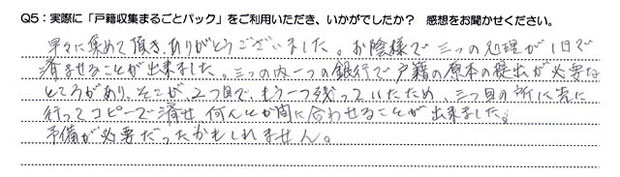 Q5：実際に「戸籍収集まるごとパック」をご利用いただき、いかがでしたか？ 感想をお聞かせください。
早々に集めて頂き、ありがとうございました。お陰様で三つの処理が1日で
済ませることが出来ました。三つの内一つの銀行で戸籍の原本の提出が必要な
ところがあり、そこが、2つ目で、もう一つ残っていたため、三つ目の所に先に
行ってコピーで済せ、何んとか間に合わせることが出来ました。
予備が必要だったかもしれません。